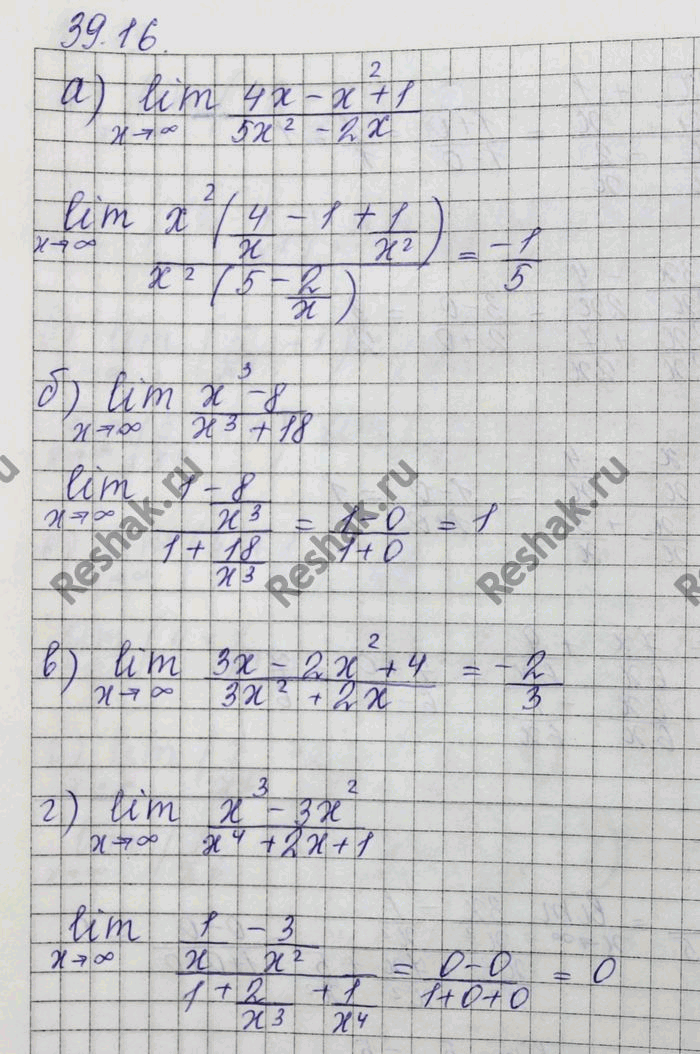 39.16.
а) lim (4x - x² + 1)/(5x² - 2x)
x→∞
lim x²(4/x - 1 + 1/x²)/(x²(5 - 2/x)) = -1/5
x→∞
б) lim (x³ - 8)/(x³ + 18)
x→∞
lim (1 - 8/x³)/(1 + 18/x³) = (1-0)/(1+0) = 1
x→∞
Reshak.ru Reshak.ru Reshak.ru
в) lim (3x - 2x² + 4)/(3x² + 2x) = -2/3
x→∞
г) lim (x³ - 3x²)/(x⁴ + 2x + 1)
x→∞
lim (1/x - 3/x²)/(1 + 2/x³ + 1/x⁴) = (0-0)/(1+0+0) = 0
x→∞